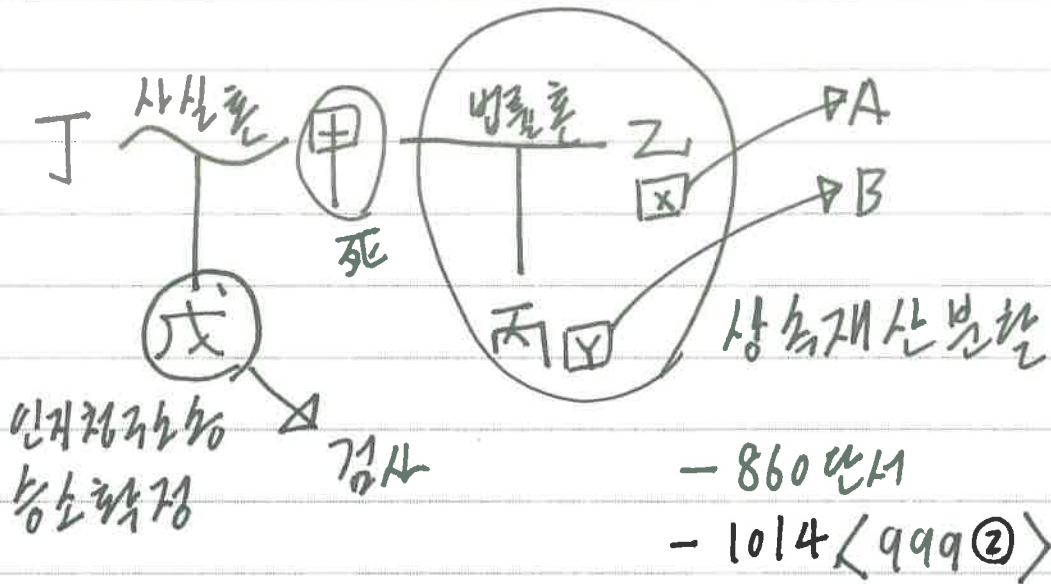 丁 사실혼 甲 법률혼 乙
死
X
A
B
戊
丙 Y
상속재산분할
인지청구소송
승소확정
검사
- 860 단서
- 1014 〈999②〉